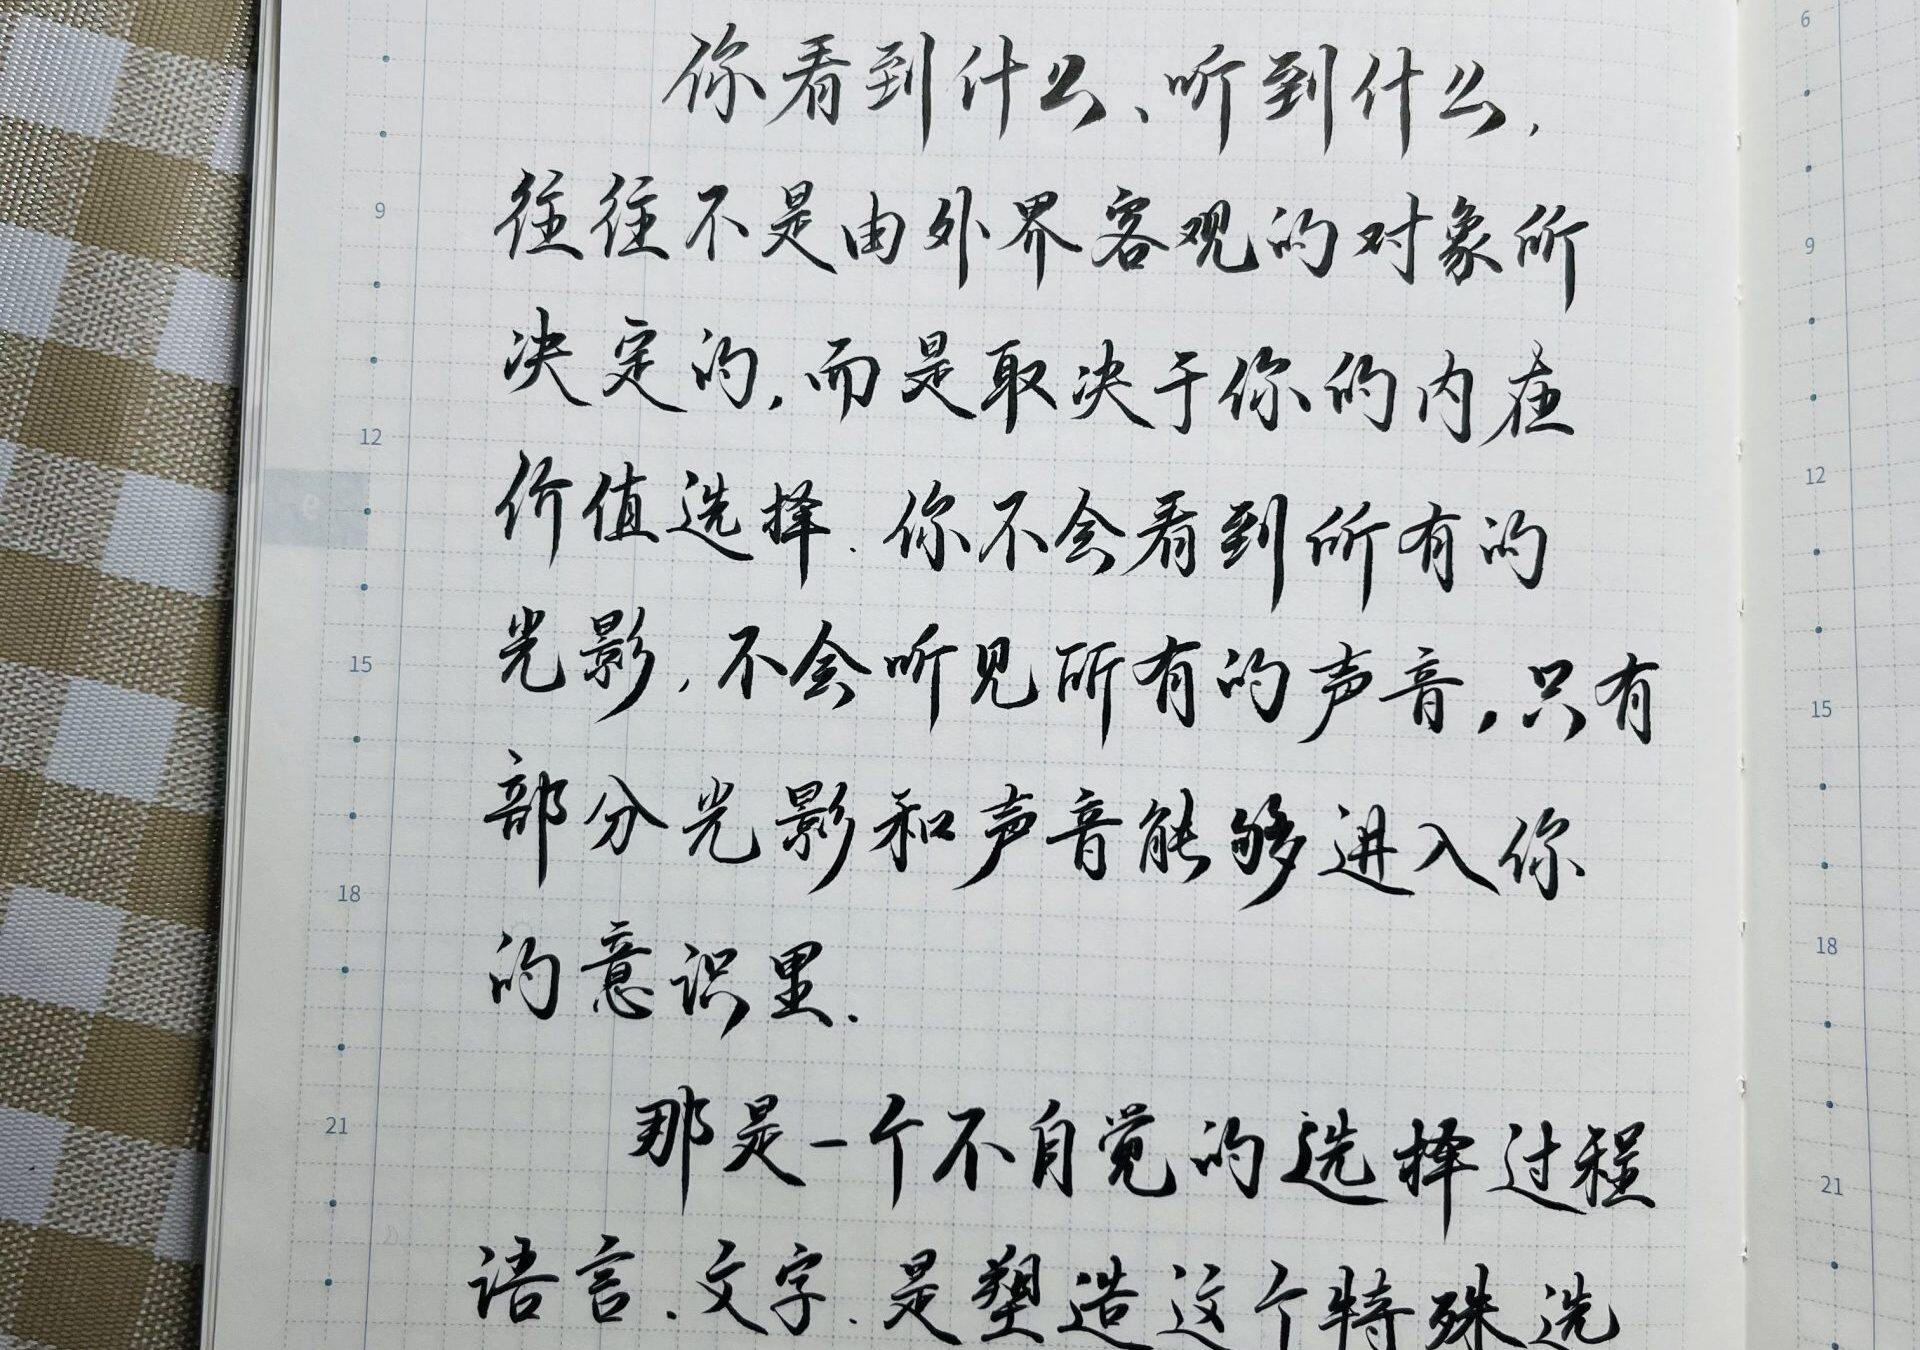 你看到什么、听到什么,
往往不是由外界客观的对象所
决定的,而是取决于你的内在
价值选择.你不会看到所有的
光影,不会听见所有的声音,只有
部分光影和声音能够进入你
的意识里.
那是一个不自觉的选择过程
语言.文字.是塑造这个特殊选
9
12
15
18
21
6
9
12
15
18
21